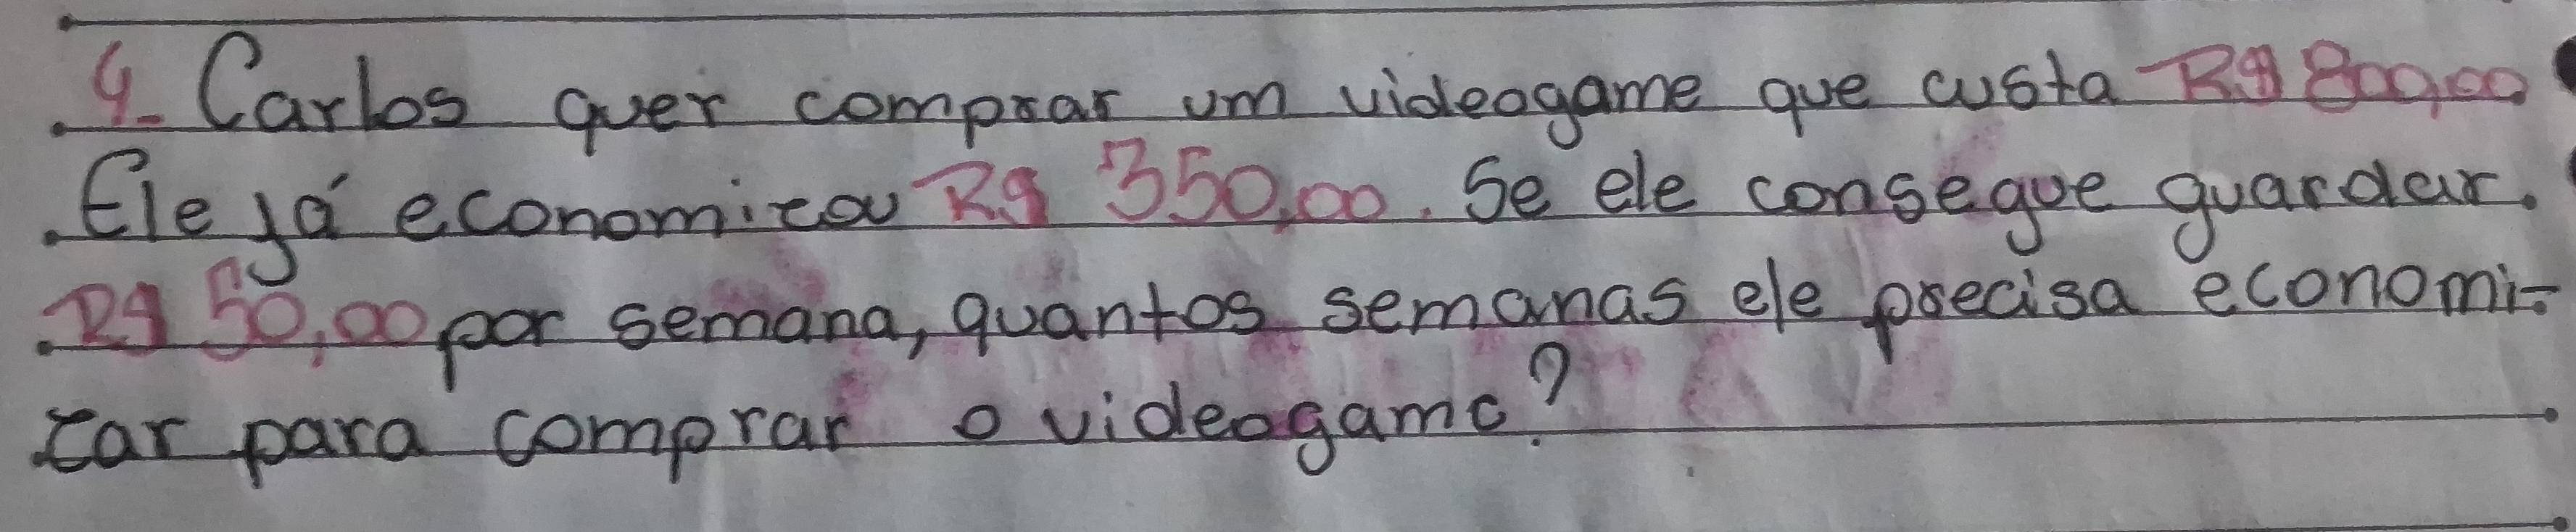 4- Carlos quer comprar um videogame que custa R$ 800,00
Ele já economizou R$ 350,00. Se ele consegue guardar.
R$ 50,00 por semana, quantos semanas ele precisa economi-
zar para comprar o videogame?